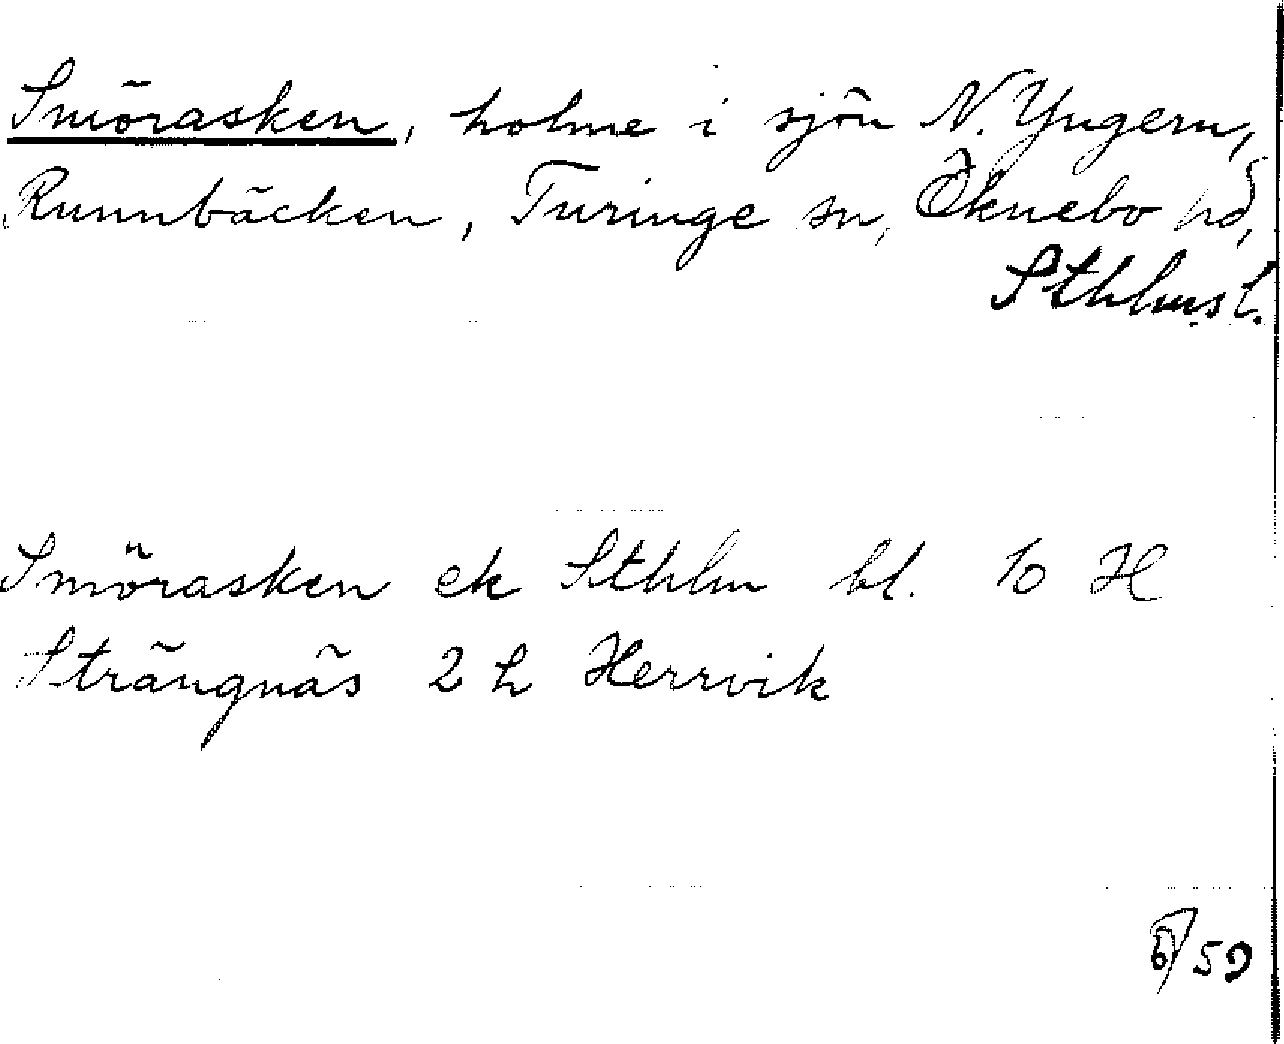 Smörasken, holme i sjön N. Yngern,
Runnbäcken, Turinge sn, Öknebo hd,
Sthlms l.
Smörasken ek Sthlm bl. 10 H
Strängnäs 2 h Herrvik
/59